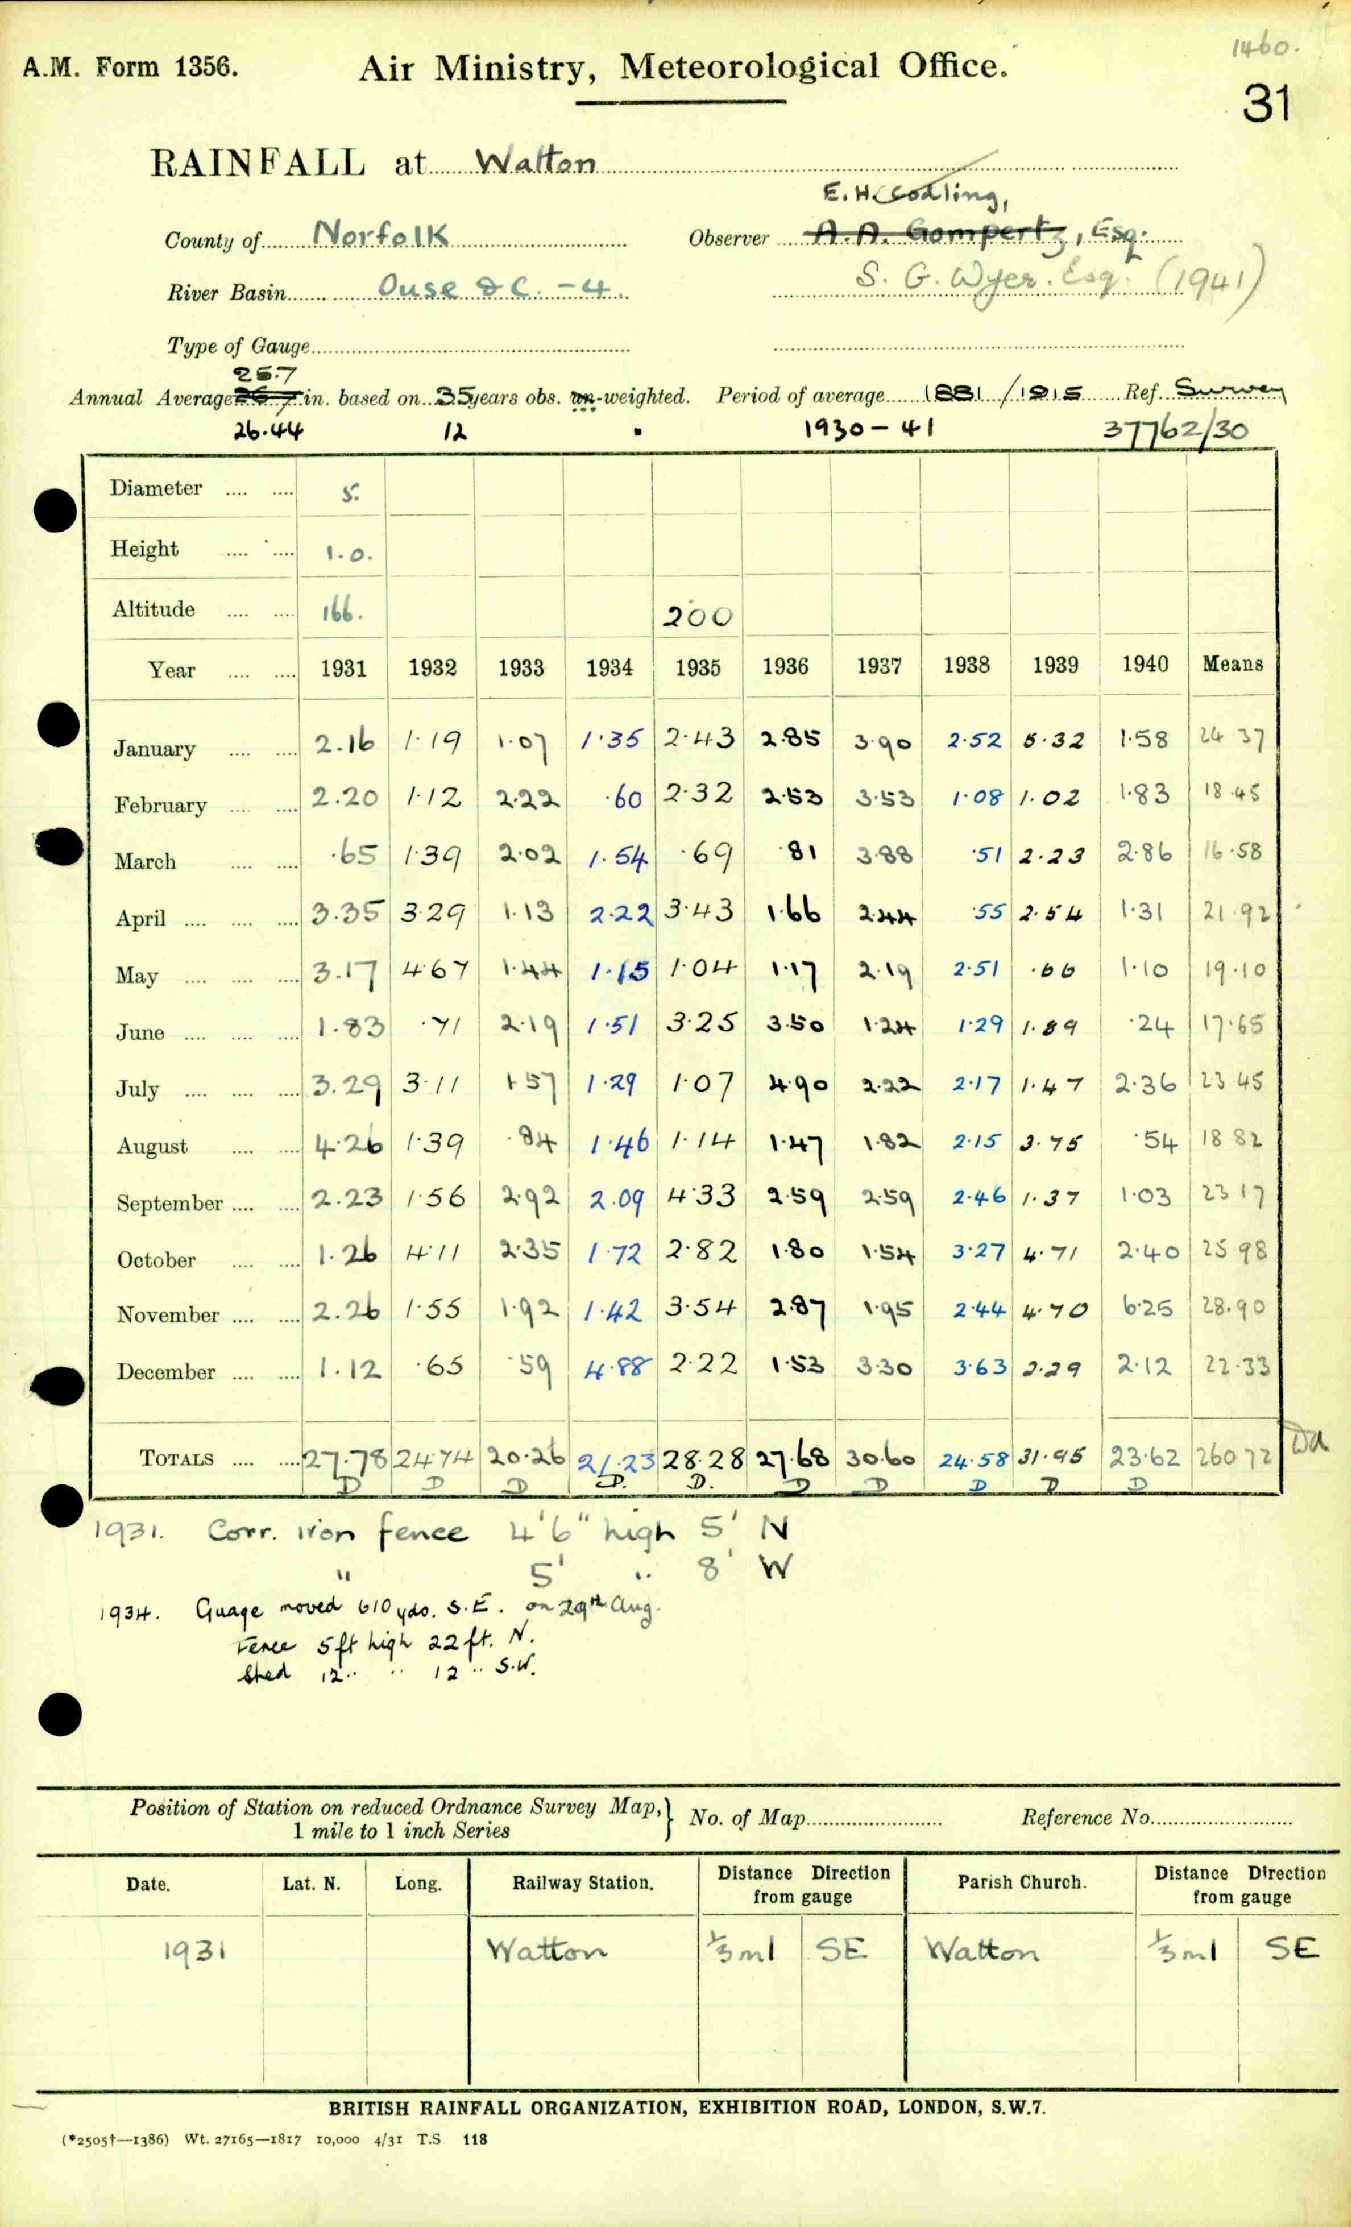 1460.
A.M. Form 1356. Air Ministry, Meteorological Office.
31
RAINFALL at Watton
E. H. Codling,
County of Norfolk Observer A. A. Gompertz, Esq.
River Basin Ouse &c. - 4. S. G. Wyer. Esq. (1941)
Type of Gauge
25.7
Annual Average 26.7 in. based on 35 years obs. un-weighted. Period of average 1881/1915 Ref. Survey
26.44 12 " 1930 - 41 37762/30
Diameter 5.
Height 1.0.
Altitude 166. 200
Year 1931 1932 1933 1934 1935 1936 1937 1938 1939 1940 Means
January 2.16 1.19 1.07 1.35 2.43 2.85 3.90 2.52 5.32 1.58 24.37
February 2.20 1.12 2.22 .60 2.32 2.53 3.53 1.08 1.02 1.83 18.45
March .65 1.39 2.02 1.54 .69 .81 3.88 .51 2.23 2.86 16.58
April 3.35 3.29 1.13 2.22 3.43 1.66 2.44 .55 2.54 1.31 21.92
May 3.17 4.67 1.44 1.15 1.04 1.17 2.19 2.51 .66 1.10 19.10
June 1.83 .71 2.19 1.51 3.25 3.50 1.24 1.29 1.89 .24 17.65
July 3.29 3.11 1.57 1.29 1.07 4.90 2.22 2.17 1.47 2.36 23.45
August 4.26 1.39 .84 1.46 1.14 1.47 1.82 2.15 3.75 .54 18.82
September 2.23 1.56 2.92 2.09 4.33 2.59 2.59 2.46 1.37 1.03 23.17
October 1.26 4.11 2.35 1.72 2.82 1.80 1.54 3.27 4.71 2.40 25.98
November 2.26 1.55 1.92 1.42 3.54 2.87 1.95 2.44 4.70 6.25 28.90
December 1.12 .65 .59 4.88 2.22 1.53 3.30 3.63 2.29 2.12 22.33
TOTALS 27.78 24.74 20.26 21.23 28.28 27.68 30.60 24.58 31.95 23.62 260.72
D D D D. D. D D D D D
1931. Corr. iron fence 4'6" high 5' N
" 5' " 8' W
1934. Guage moved 610 yds. S.E. on 29th Aug.
Fence 5ft high 22 ft. N.
Shed 12 " " 12 " S.W.
Position of Station on reduced Ordnance Survey Map, 1 mile to 1 inch Series } No. of Map Reference No.
Date. Lat. N. Long. Railway Station. Distance Direction from gauge Parish Church. Distance Direction from gauge
1931 Watton 1/3 ml SE Watton 1/3 ml SE
BRITISH RAINFALL ORGANIZATION, EXHIBITION ROAD, LONDON, S.W.7.
(*2505†—1386) Wt. 27165—1817 10,000 4/31 T.S 118